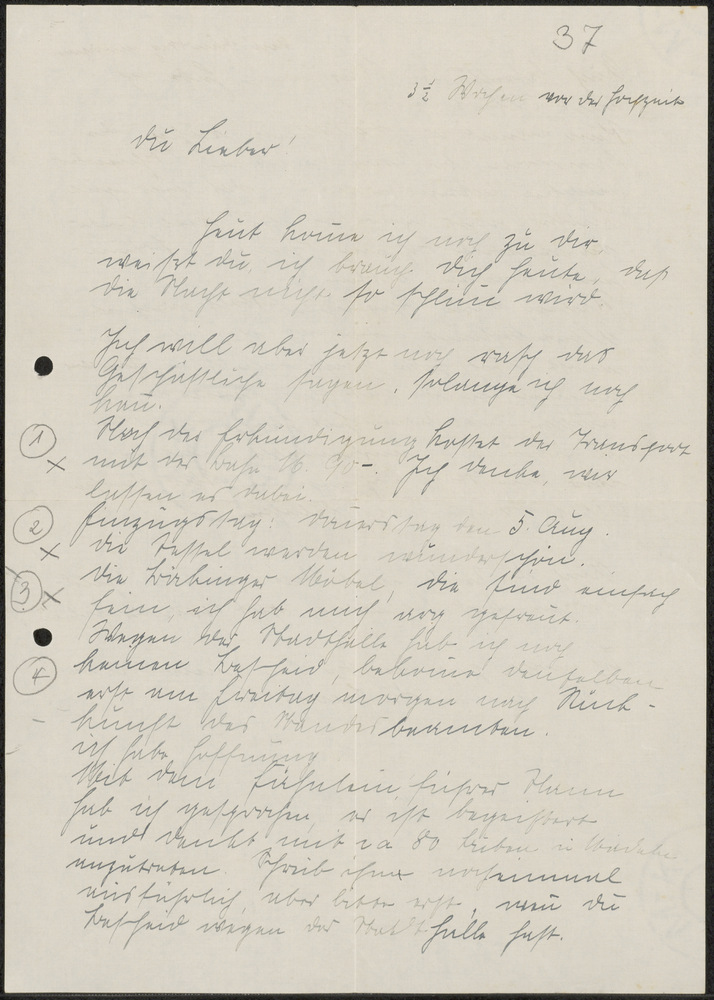 37
3 1/2 Wochen vor der Hochzeit
Du Lieber!
Heut komme ich noch zu Dir,
weißt Du, ich brauch Dich heute, daß
die Nacht nicht so schlimm wird.
Ich will aber jetzt noch rasch das
Geschäftliche sagen, solange ich noch
kann.
1 Nach der Erkundigung kostet der Transport
mit der Bahn 16.90-. Ich denke, wir
lassen es dabei.
2 Einzugstag: Donnerstag den 5. Aug.
die Sessel werden wunderschön.
3 Die Möbel, die sind einfach
fein, ich hab mich arg gefreut.
Wegen der Stadthalle hab ich noch
4 keinen Bescheid, bekomme denselben
erst am Freitag morgen nach Rück-
kunft des Standesbeamten.
ich habe Hoffnung
Mit dem Fähnleinführer
hab ich gesprochen, er ist begeistert
und denkt mit ca 80 Buben u. Mädeln
anzutreten. Schreib ihm nocheinmal
ausführlich, aber bitte erst, wenn Du
Bescheid wegen der Stadthalle hast.